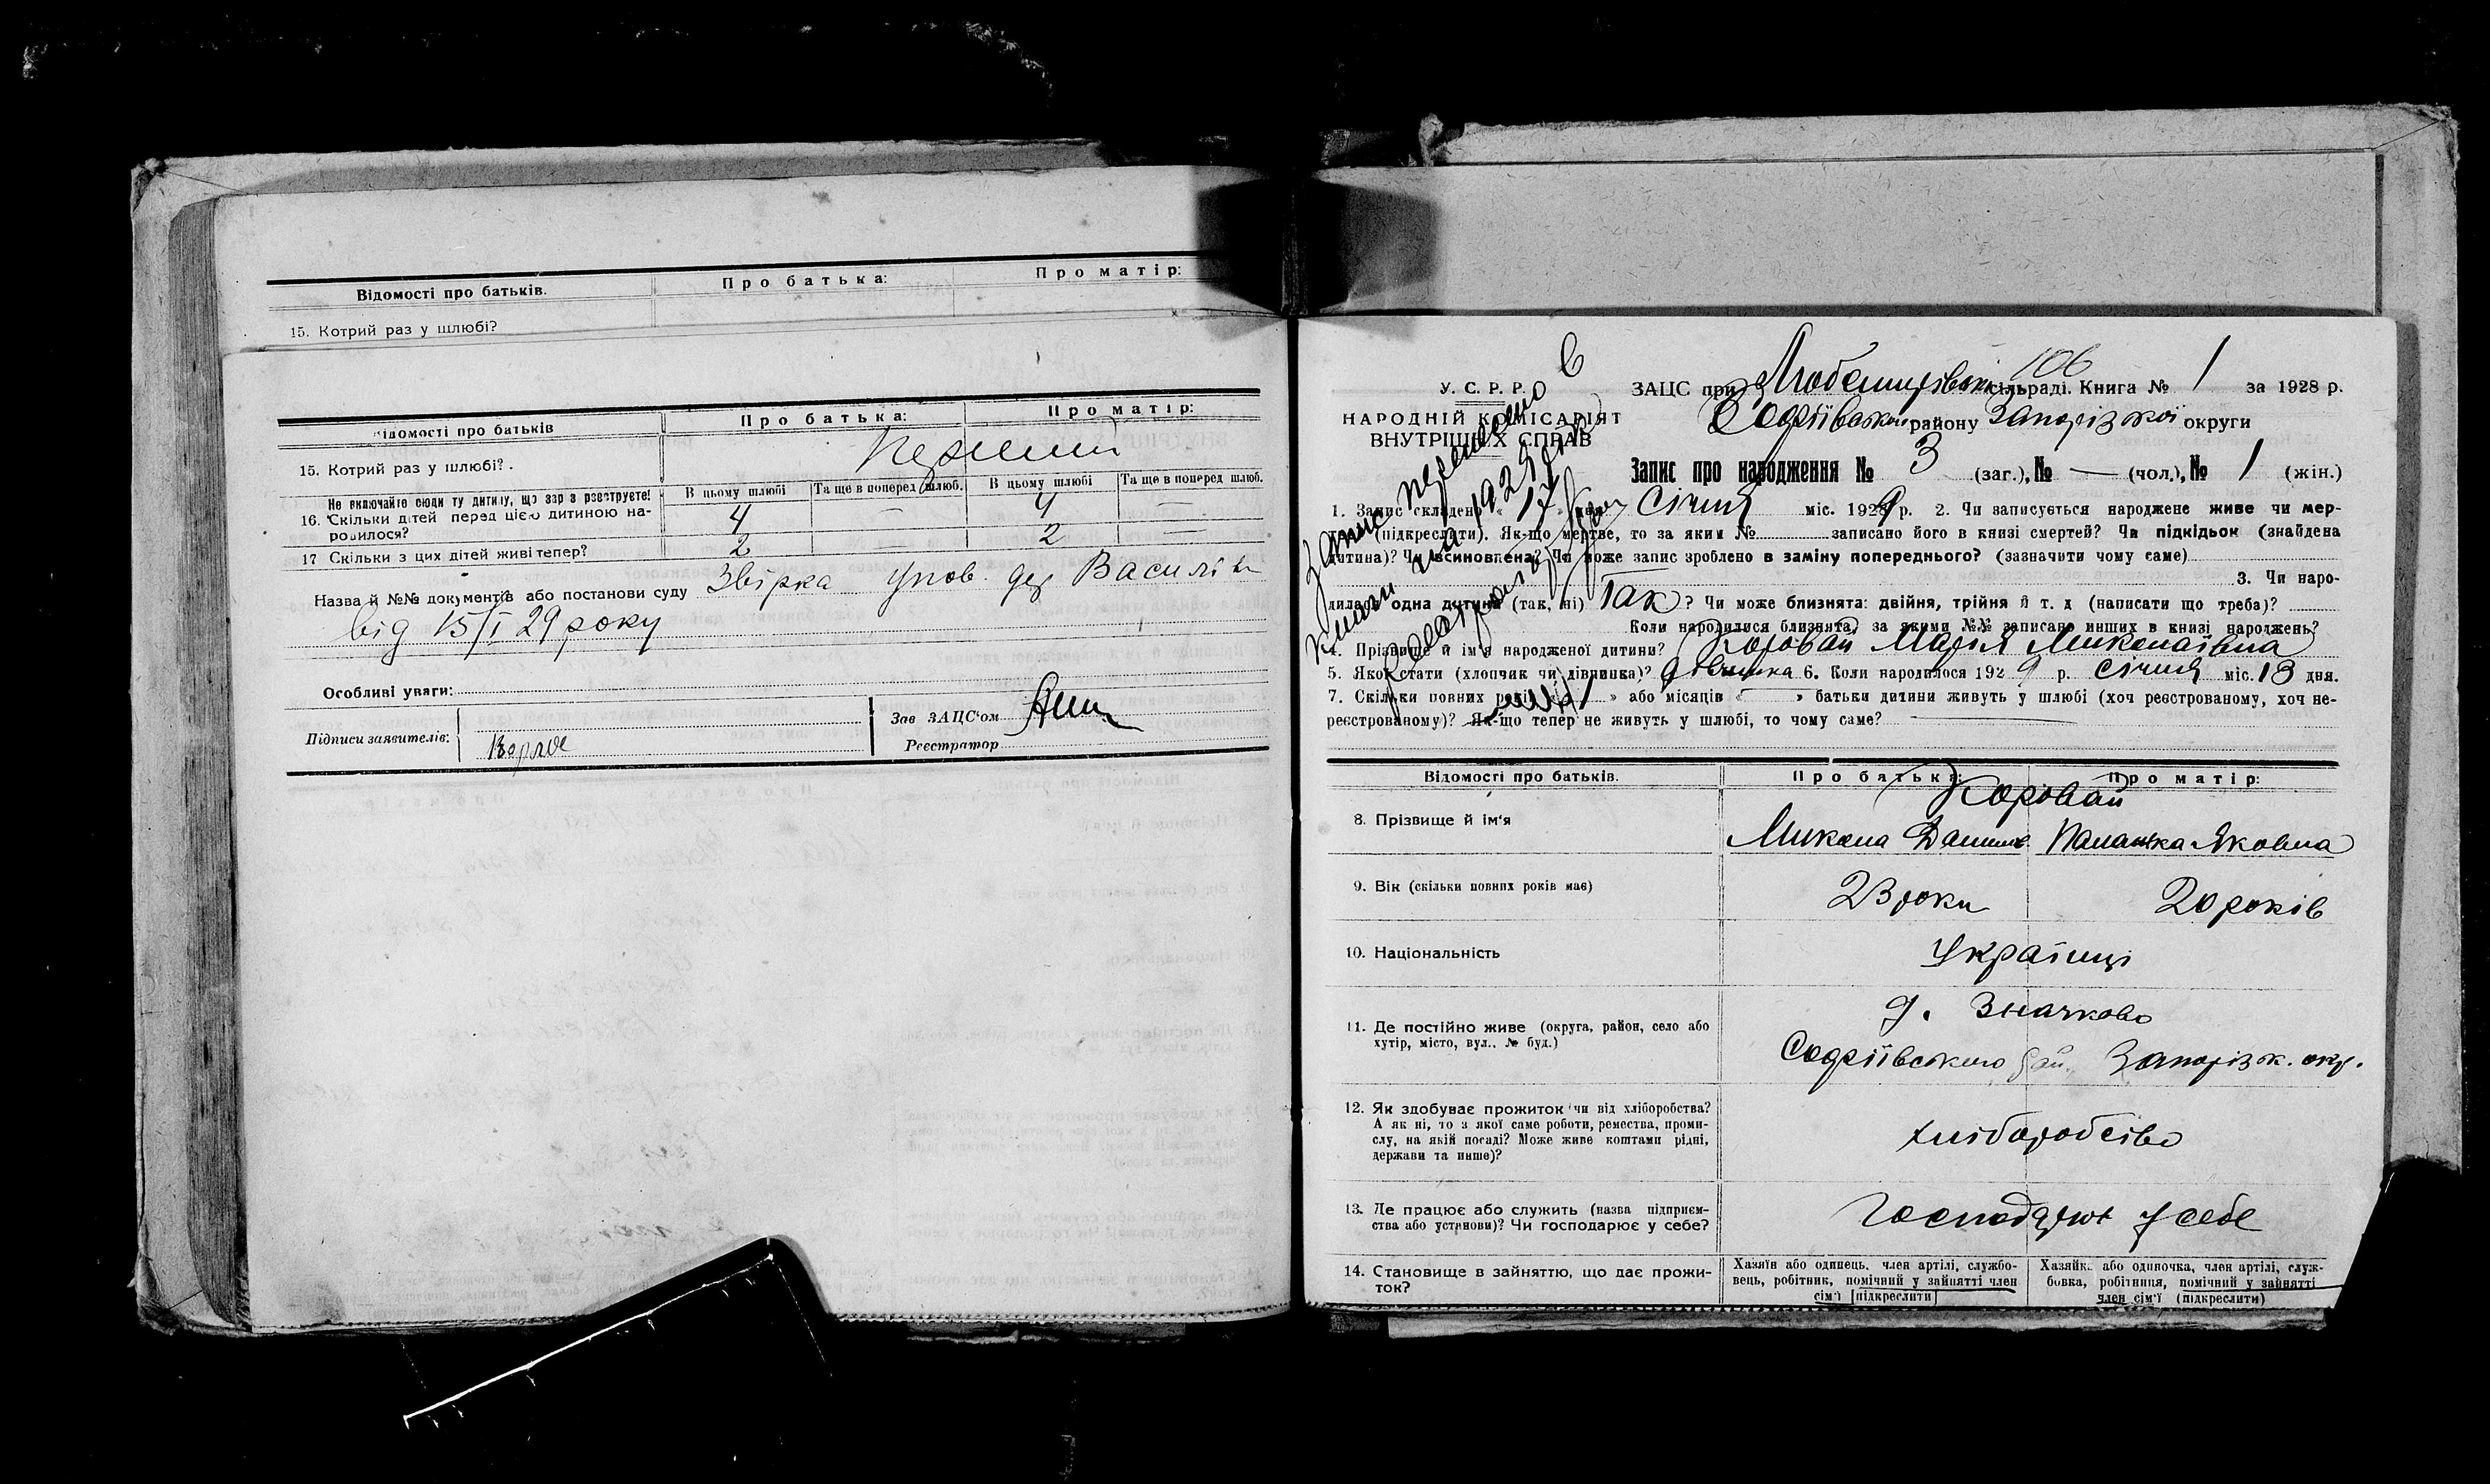 Відомості про батьків.
Про батька:
Про матір:
15. Котрий раз у шлюбі?
Відомості про батьків
Про батька:
Про матір:
15. Котрий раз у шлюбі?.
Не включайте сюди ту дитину, що зараз реєструєте!
16. Скільки дітей перед цією дитиною на-
родилося?
В цьому шлюбі
Та ще в поперед. шлюб.
В цьому шлюбі
Та ще в поперед шлюб.
4 — 4 —
17 Скільки з цих дітей живі тепер?
2 — 2 —
Назва й №№ документів або постанови суду Збірка упов. дер Василів
від 15/I 29 року
Особливі уваги:
Підписи заявителів:
Зав ЗАЦС'ом
Реєстратор
6
106
У. С. Р. Р.
НАРОДНІЙ КОМІСАРІЯТ
ВНУТРІШНІХ СПРАВ
ЗАЦС при сільраді. Книга № 1 за 1928 р.
Софіївськ району Запорізької округи
Запис про народження № 3 (заг.), № — (чол.), № 1 (жін.)
Запис
книги 1929
1. Запис складено « 17 » дня Січня міс. 1929 р. 2. Чи записується народжене живе чи мер-
тве (підкреслити). Як-що мертве, то за яким № записано його в книзі смертей? Чи підкідьок (знайдена
дитина)? Чи всиновлена? Чи може запис зроблено в заміну попереднього? (зазначити чому саме)
3. Чи наро-
дилась одна дитина (так, ні) Так ? Чи може близнята: двійня, трійня й т. д (написати що треба)?
Коли народилися близнята, за якими №№ записано инших в книзі народжень?
4. Прізвище й ім'я народженої дитини? Коровай Марія Миколаївна
5. Якої стати (хлопчик чи дівчинка)? дівчинка 6. Коли народилося 1929 р. січня міс. 13 дня.
7. Скільки повних років » або місяців « — » батьки дитини живуть у шлюбі (хоч реєстрованому, хоч не-
реєстрованому)? Як-що тепер не живуть у шлюбі, то чому саме? —
Відомості про батьків.
Про батька:
Про матір:
Коровай
8. Прізвище й ім'я
Микола Данилов.
Паланка Яковна
9. Вік (скільки повних років має)
23 роки
20 років
10. Національність
Українці
11. Де постійно живе (округа, район, село або
хутір, місто, вул., № буд.)
д. Значково
Софіївського рай. Запорізьк. окр.
12. Як здобуває прожиток чи від хліборобства?
А як ні, то з якої саме роботи, ремества, проми-
слу, на якій посаді? Може живе коштами рідні,
держави та инше)?
хліборобство
13. Де працює або служить (назва підприєм-
ства або установи)? Чи господарює у себе?
Господарюю у себе
14. Становище в зайняттю, що дає прожи-
ток?
Хазяїн або одинець, член артілі, службо-
вець, робітник, помічний у зайнятті член
сім'ї (підкреслити)
Хазяйк. або одиночка, член артілі, служ-
бовка, робітниця, помічний у зайнятті
член сім'ї (підкреслити)